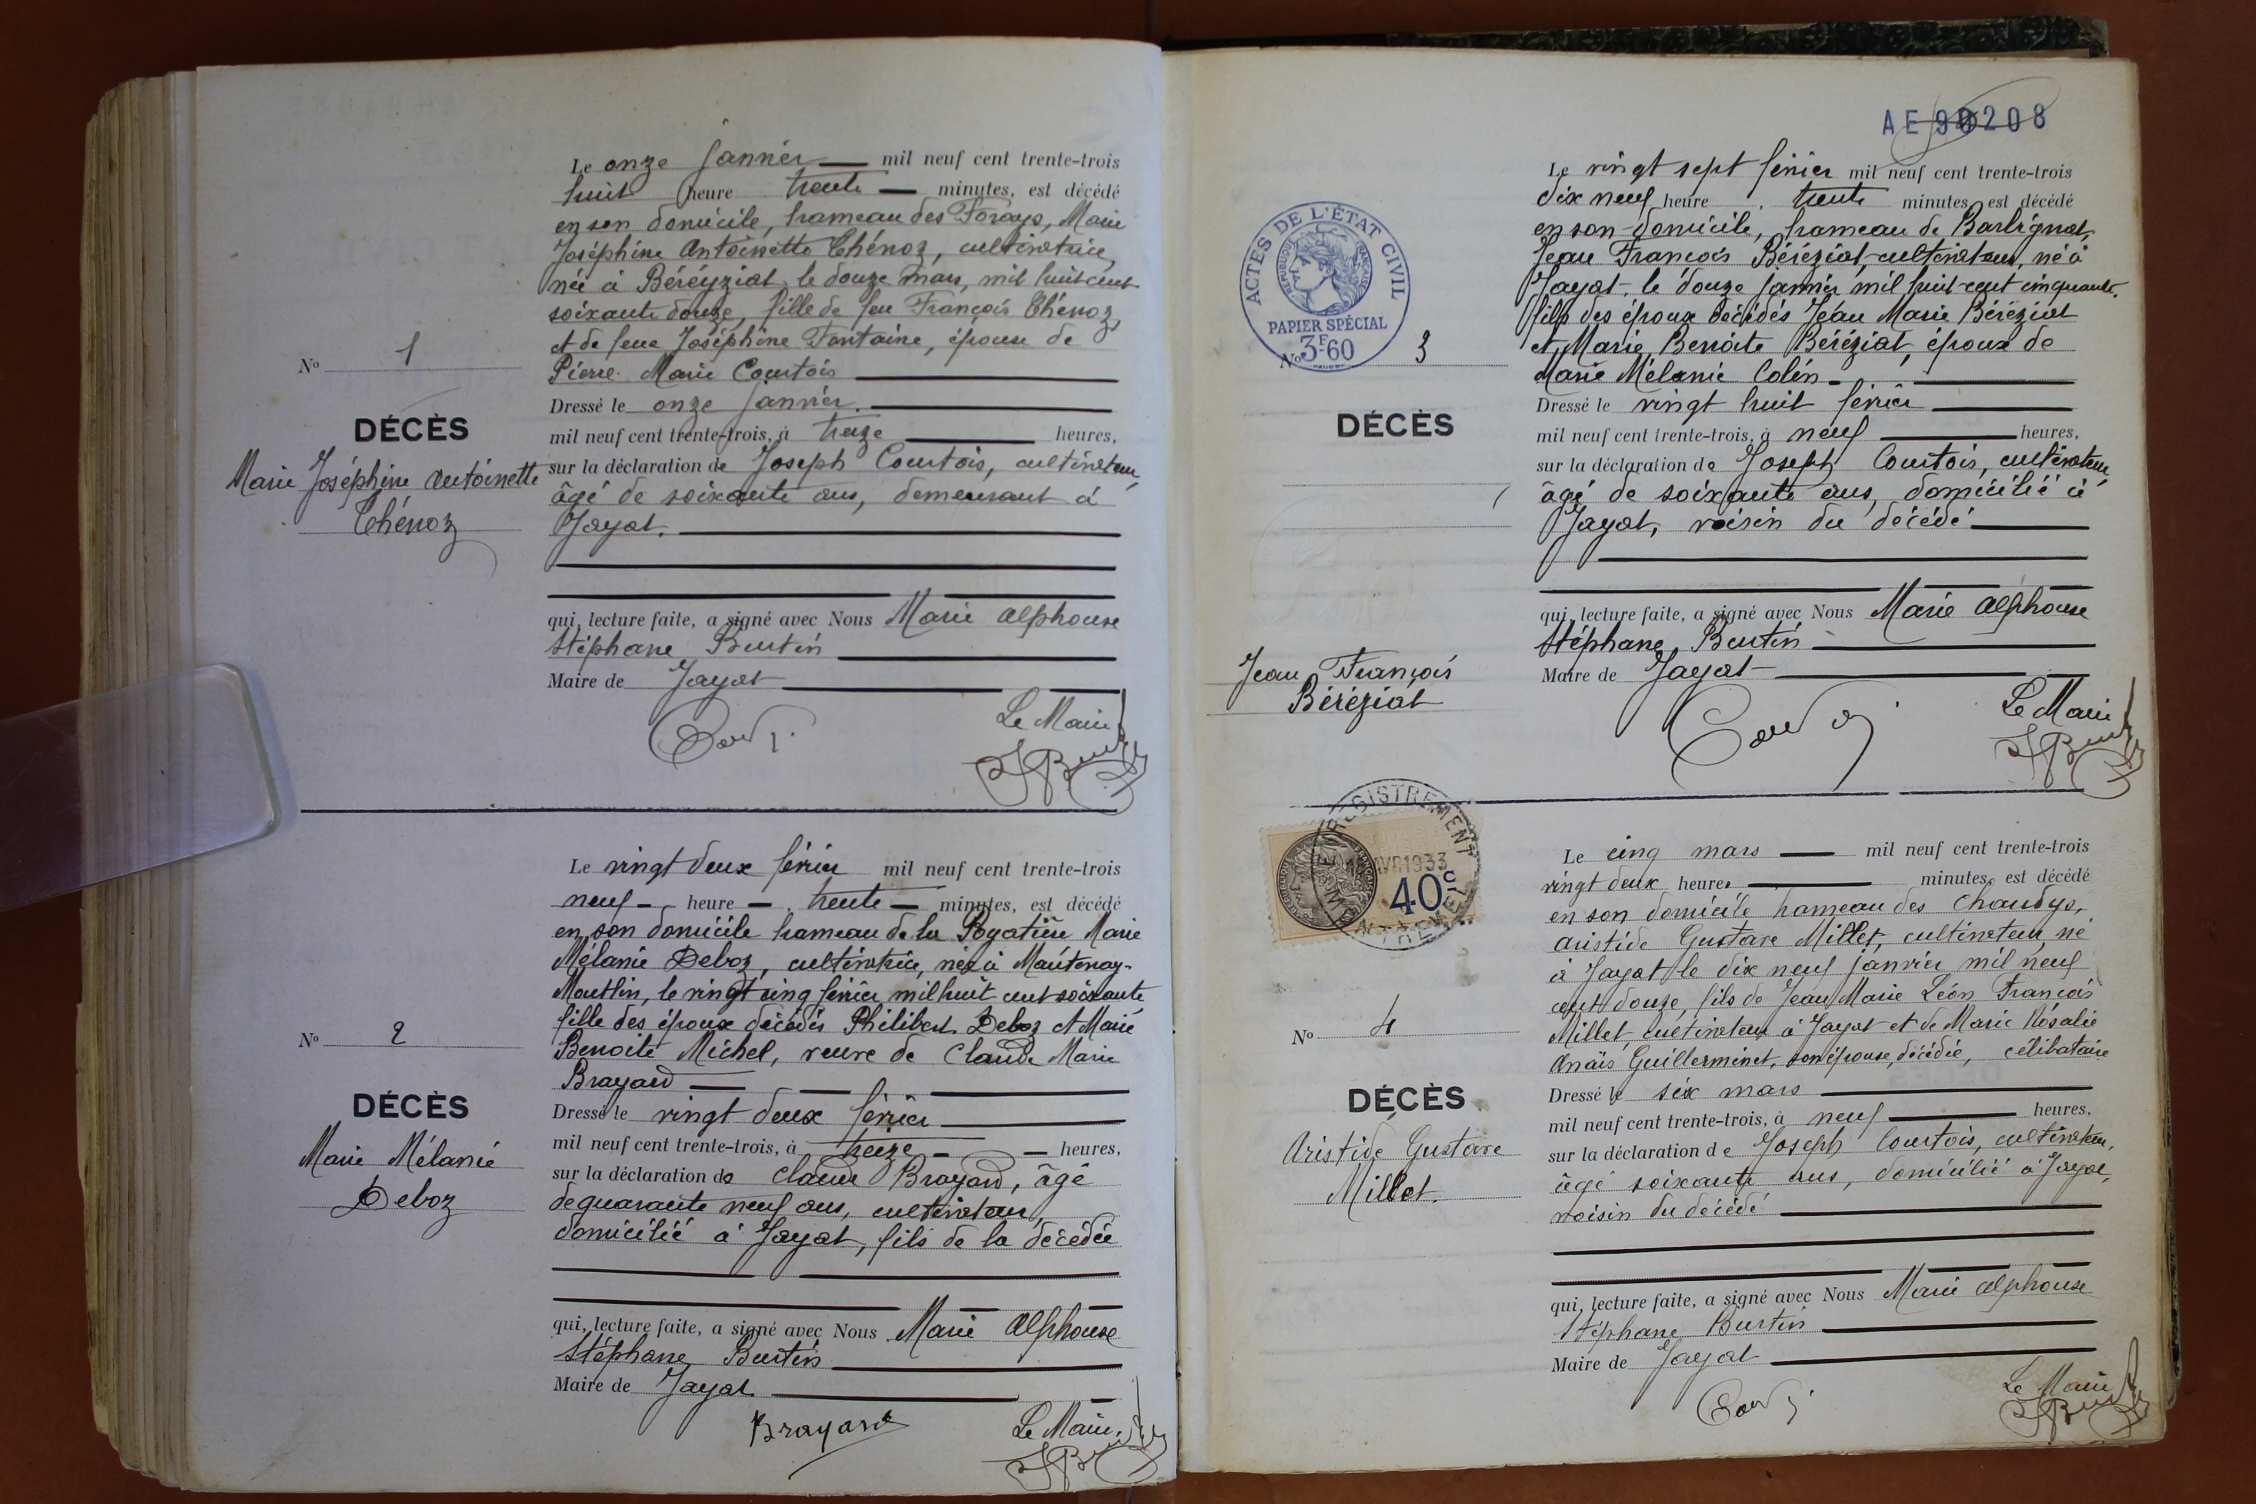 Le onze Janvier mil neuf cent trente-trois
huit heure trente minutes, est décédé
en son domicile, hameau des Forays, Marie
Joséphine Antoinette Chénoz, cultivatrice,
née à Béréyziat, le douze mars, mil huit cent
soixante douze, fille de feu François Chénoz,
et de feue Joséphine Fontaine, épouse de
Pierre Marie Courtois
Nº 1
DÉCÈS
Marie Joséphine Antoinette
Chénoz
Dressé le onze Janvier.
mil neuf cent trente-trois, à treize heures,
sur la déclaration de Joseph Courtois, cultivateur,
âgé de soixante ans, demeurant à
Jayat.
qui, lecture faite, a signé avec Nous Marie Alphonse
Stéphane Burtin
Maire de Jayat
Le Maire
Le vingt deux février mil neuf cent trente-trois
neuf heure trente minutes, est décédé
en son domicile hameau de la Marie
Mélanie Deboz, cultivatrice, née à Mantenay-
Montlin, le vingt cinq février mil huit cent soixante
fille des époux décédés Philibert Deboz et Marie
Benoite Michel, veuve de Claude Marie
Brayard
Nº 2
DÉCÈS
Marie Mélanie
Deboz
Dressé le vingt deux février
mil neuf cent trente-trois, à treize heures,
sur la déclaration de Claude Brayard, âgé
de quarante neuf ans, cultivateur,
domicilié à Jayat, fils de la décédée
qui, lecture faite, a signé avec Nous Marie Alphonse
Stéphane Burtin
Maire de Jayat
Brayard
Le Maire,
AE 90208
ACTES DE L'ÉTAT CIVIL
RÉPUBLIQUE FRANÇAISE
PAPIER SPÉCIAL
3F60
Le vingt sept février mil neuf cent trente-trois
dix neuf heure trente minutes est décédé
en son domicile, hameau de Barbignat,
Jean François Béréziat, cultivateur, né à
Jayat, le douze janvier mil huit cent cinquante.
fils des époux décédés Jean Marie Béréziat
et Marie Benoite Béréziat, époux de
Marie Mélanie Colin
Nº 3
DÉCÈS
Jean François
Béréziat
Dressé le vingt huit février
mil neuf cent trente-trois, à neuf heures,
sur la déclaration de Joseph Courtois, cultivateur,
âgé de soixante ans, domicilié à
Jayat, voisin du décédé
qui, lecture faite, a signé avec Nous Marie Alphonse
Stéphane Burtin
Maire de Jayat
Le Maire
ENREGISTREMENT
1933
40c
Le cinq mars mil neuf cent trente-trois
vingt deux heures minutes, est décédé
en son domicile hameau des Chaudys,
Aristide Gustave Millet, cultivateur, né
à Jayat le dix neuf janvier mil neuf
cent douze, fils de Jean Marie Léon François
Millet, cultivateur à Jayat et de Marie Rosalie
Anaïs Guillerminet, son épouse, décédée, célibataire
Nº 4
DÉCÈS
Aristide Gustave
Millet.
Dressé le six mars
mil neuf cent trente-trois, à neuf heures,
sur la déclaration de Joseph Courtois, cultivateur,
âgé soixante ans, domicilié à Jayat,
voisin du décédé
qui, lecture faite, a signé avec Nous Marie Alphonse
Stéphane Burtin
Maire de Jayat
Le Maire